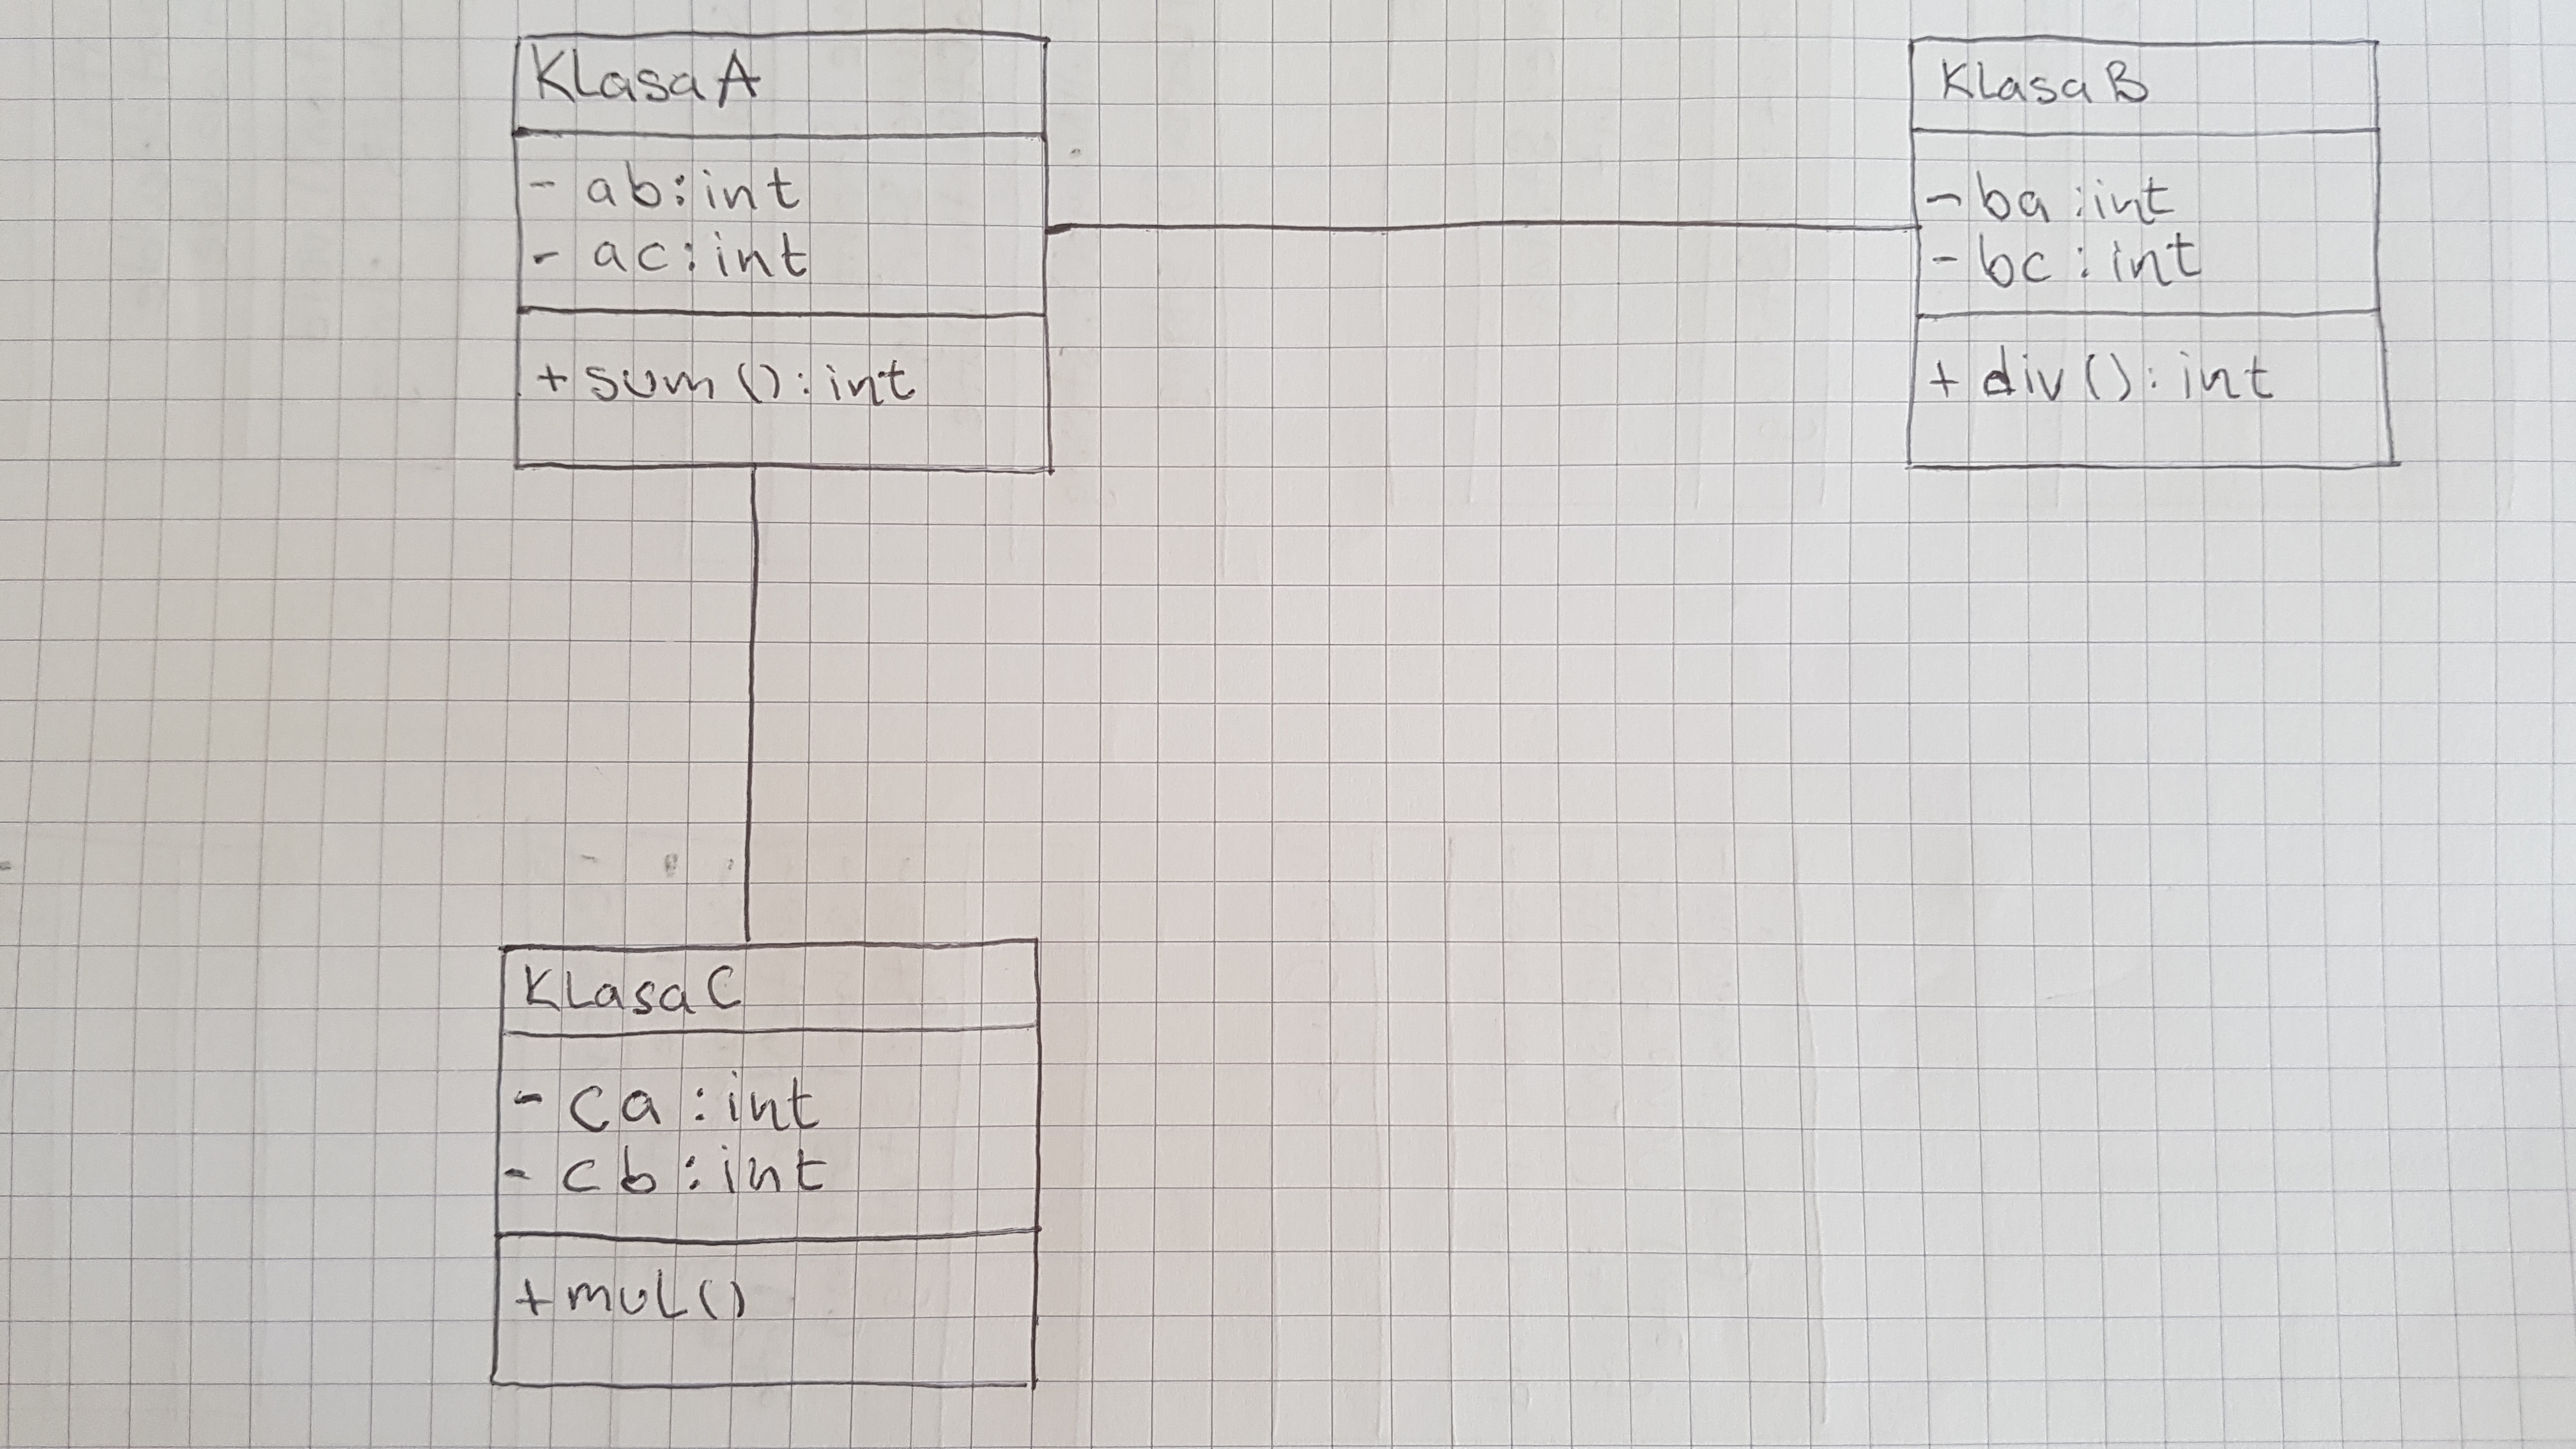 KlasaA
- ab: int
- ac: int
+ sum (): int
KlasaB
- ba : int
- bc : int
+ div(): int
KlasaC
- ca : int
- cb : int
+ mul()